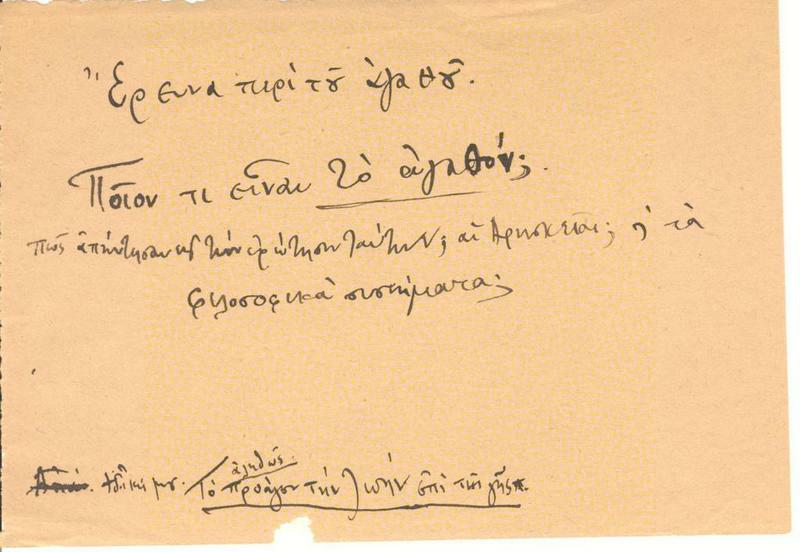 Ἔρευνα περὶ τοῦ ἀγαθοῦ.
Ποῖόν τι εἶναι τὸ ἀγαθόν;.
Πῶς ἀπήντησαν εἰς τὴν ἐρώτησιν ταύτην; αἱ θρησκεῖαι; ἢ τὰ
φιλοσοφικὰ συστήματα;
ἀληθῶς
Τὸ προάγον τὴν ζωὴν ἐπὶ τῆς γῆς.